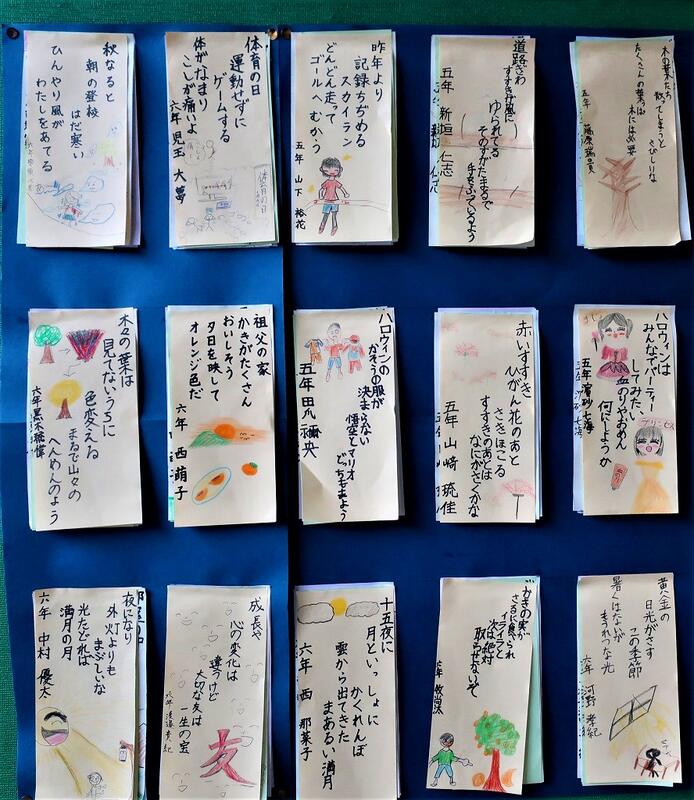 秋なると
朝の登校
はだ寒い
ひんやり風が
わたしをあてる
体育の日
運動せずに
ゲームする
体がなまり
こしが痛いよ
六年 児玉 大夢
体育の日
昨年より
記録ちぢめる
スカイラン
どんどん走って
ゴールへむかう
五年 山下 裕花
道路ぎわ
すすきが風に
ゆられてる
そのすがたまるで
手をふっているよう
五年 新垣 仁志
木の葉たち
散ってしまうと
さびしいな
たくさんの葉っぱ
木には必要
五年
木々の葉は
見てないうちに
色変える
まるで山々の
へんめんのよう
六年 黒木
祖父の家
かきがたくさん
おいしそう
夕日を映して
オレンジ色だ
六年 西 萌子
ハロウィンの
かそうの服が
決まらない
悟空とマリオ
どっちにしよう
五年
赤いすすき
ひがん花のあと
さきほこる
すすきのあとは
なにがさくかな
五年 山﨑 琉佳
ハロウィンは
みんなでパーティー
してみたい
血のりやおめん
何にしようか
五年
プリンセス
夜になり
外灯よりも
まぶしいな
光たどれば
満月の月
六年 中村 優太
成長や
心の変化は
違うけど
大切な友は
一生の宝
六年
友
十五夜に
月といっしょに
かくれんぼ
雲から出てきた
まあるい満月
六年 西 那菜子
かきの実が
さるに食べられ
イライラと
次は絶対
取らせないぞ
六年
黄金の
日光がさす
この季節
暑くはないが
まぎれた光
六年 河野 孝紀